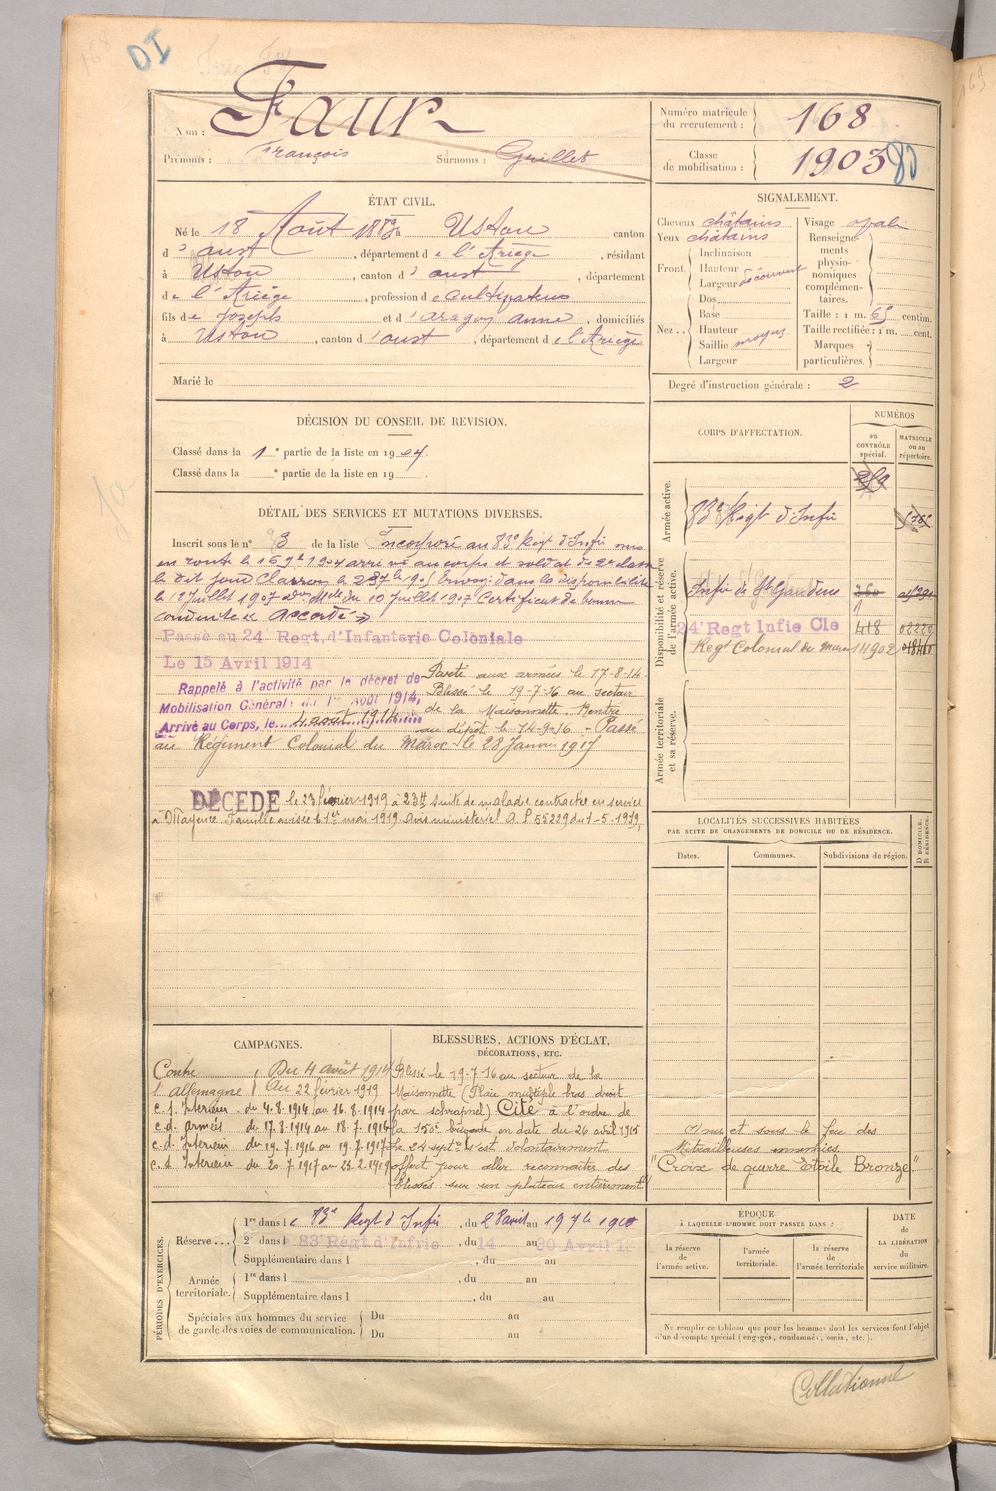 168
DI
Nom : Faur
Prénoms : François Surnoms : Guillet
Numéro matricule du recrutement : 168
Classe de mobilisation : 1903
ÉTAT CIVIL.
Né le 18 Août 1883 à Ustou canton
d' oust, département de l'Ariège, résidant
à Ustou, canton d' oust, département
de l'Ariège, profession de cultivateur
fils de Joseph et d' aragon anne, domiciliés
à Ustou, canton d' oust, département de l'Ariège
Marié le
SIGNALEMENT.
Cheveux châtains
Yeux châtains
Front. Inclinaison
Hauteur
Largeur découvert
Nez.. Dos
Base
Hauteur
Saillie moyens
Largeur
Visage ovale
Renseignements physionomiques complémentaires.
Taille : 1 m. 65 centim.
Taille rectifiée : 1 m. cent.
Marques particulières.
Degré d'instruction générale : 2
DÉCISION DU CONSEIL DE REVISION.
Classé dans la 1e partie de la liste en 1904.
Classé dans la e partie de la liste en 19
CORPS D'AFFECTATION.
NUMÉROS
au CONTRÔLE spécial.
MATRICULE ou au répertoire.
Armée active.
83e Regt d'Infie
Disponibilité et réserve de l'armée active.
Infie de St Gaudens
24e Regt Infie Cle 418
Regt Colonial du Maroc 14902
Armée territoriale et sa réserve.
DÉTAIL DES SERVICES ET MUTATIONS DIVERSES.
Inscrit sous le n° 3 de la liste Incorporé au 83e Regt d'Infie mis
en route le 16 9bre 1904 arrivé au corps et soldat de 2e classe
le dit jour Clairon le
le 12 Juillet 1907 du 10 Juillet 1907 Certificat de bonne
conduite "Accordé"
Passé au 24e Regt. d'Infanterie Coloniale
Le 15 Avril 1914
Rappelé à l'activité par le décret de
Mobilisation Générale du 1er Août 1914,
Arrivé au Corps, le 4 août 1914
Parti aux armées le 17-8-14
Blessé le 19-7-16 au secteur
de la Maisonnette. Rentré
au dépôt le 14-9-16 - Passé
au Régiment Colonial du Maroc le 28 Janvier 1917
DÉCÉDÉ le 23 février 1919 à 23H suite de maladie contractée en service
à Mayence. Famille avisée le 1er mai 1919 Avis ministériel A.P. 55229 du 1-5-1919,
LOCALITÉS SUCCESSIVES HABITÉES
PAR SUITE DE CHANGEMENTS DE DOMICILE OU DE RÉSIDENCE.
Dates.
Communes.
Subdivisions de région.
D DOMICILE. R RÉSIDENCE.
CAMPAGNES.
Contre Du 4 août 1914
l'allemagne Au 22 février 1919
c. d. Intérieur du 4.8.1914 au 16.8.1914
c. d. armées du 17.8.1914 au 18.7.1916
c. d. Intérieur du 19.7.1916 au 19.7.1917
c. d. Intérieur du 20.7.1917 au 22.2.1919
BLESSURES, ACTIONS D'ÉCLAT,
DÉCORATIONS, ETC.
Blessé le 19-7-16 au secteur de la
Maisonnette (Plaie multiple bras droit
par schrapnel) Cité à l'ordre de
la brigade en date du 26 avril 1915
Le 24 septbre s'est volontairement
offert pour aller reconnaître des
blessés sur un plateau entièrement
nu et sous le feu des
Mitrailleuses ennemies
"Croix de guerre Etoile Bronze."
PÉRIODES D'EXERCICES.
Réserve... 1re dans le 83e Regt d'Infie, du 28 avril au 1910
2e dans le 83e Régt. d'Infrie, du 14 au 30 Avril 1
Supplémentaire dans l , du au
Armée territoriale. 1re dans l , du au
Supplémentaire dans l , du au
Spéciales aux hommes du service de garde des voies de communication. Du au
Du au
ÉPOQUE
À LAQUELLE L'HOMME DOIT PASSER DANS :
la réserve de l'armée active.
l'armée territoriale.
la réserve de l'armée territoriale
DATE de LA LIBÉRATION du service militaire.
Ne remplir ce tableau que pour les hommes dont les services font l'objet
d'un décompte spécial (engagés, condamnés, omis, etc.).
Collationné